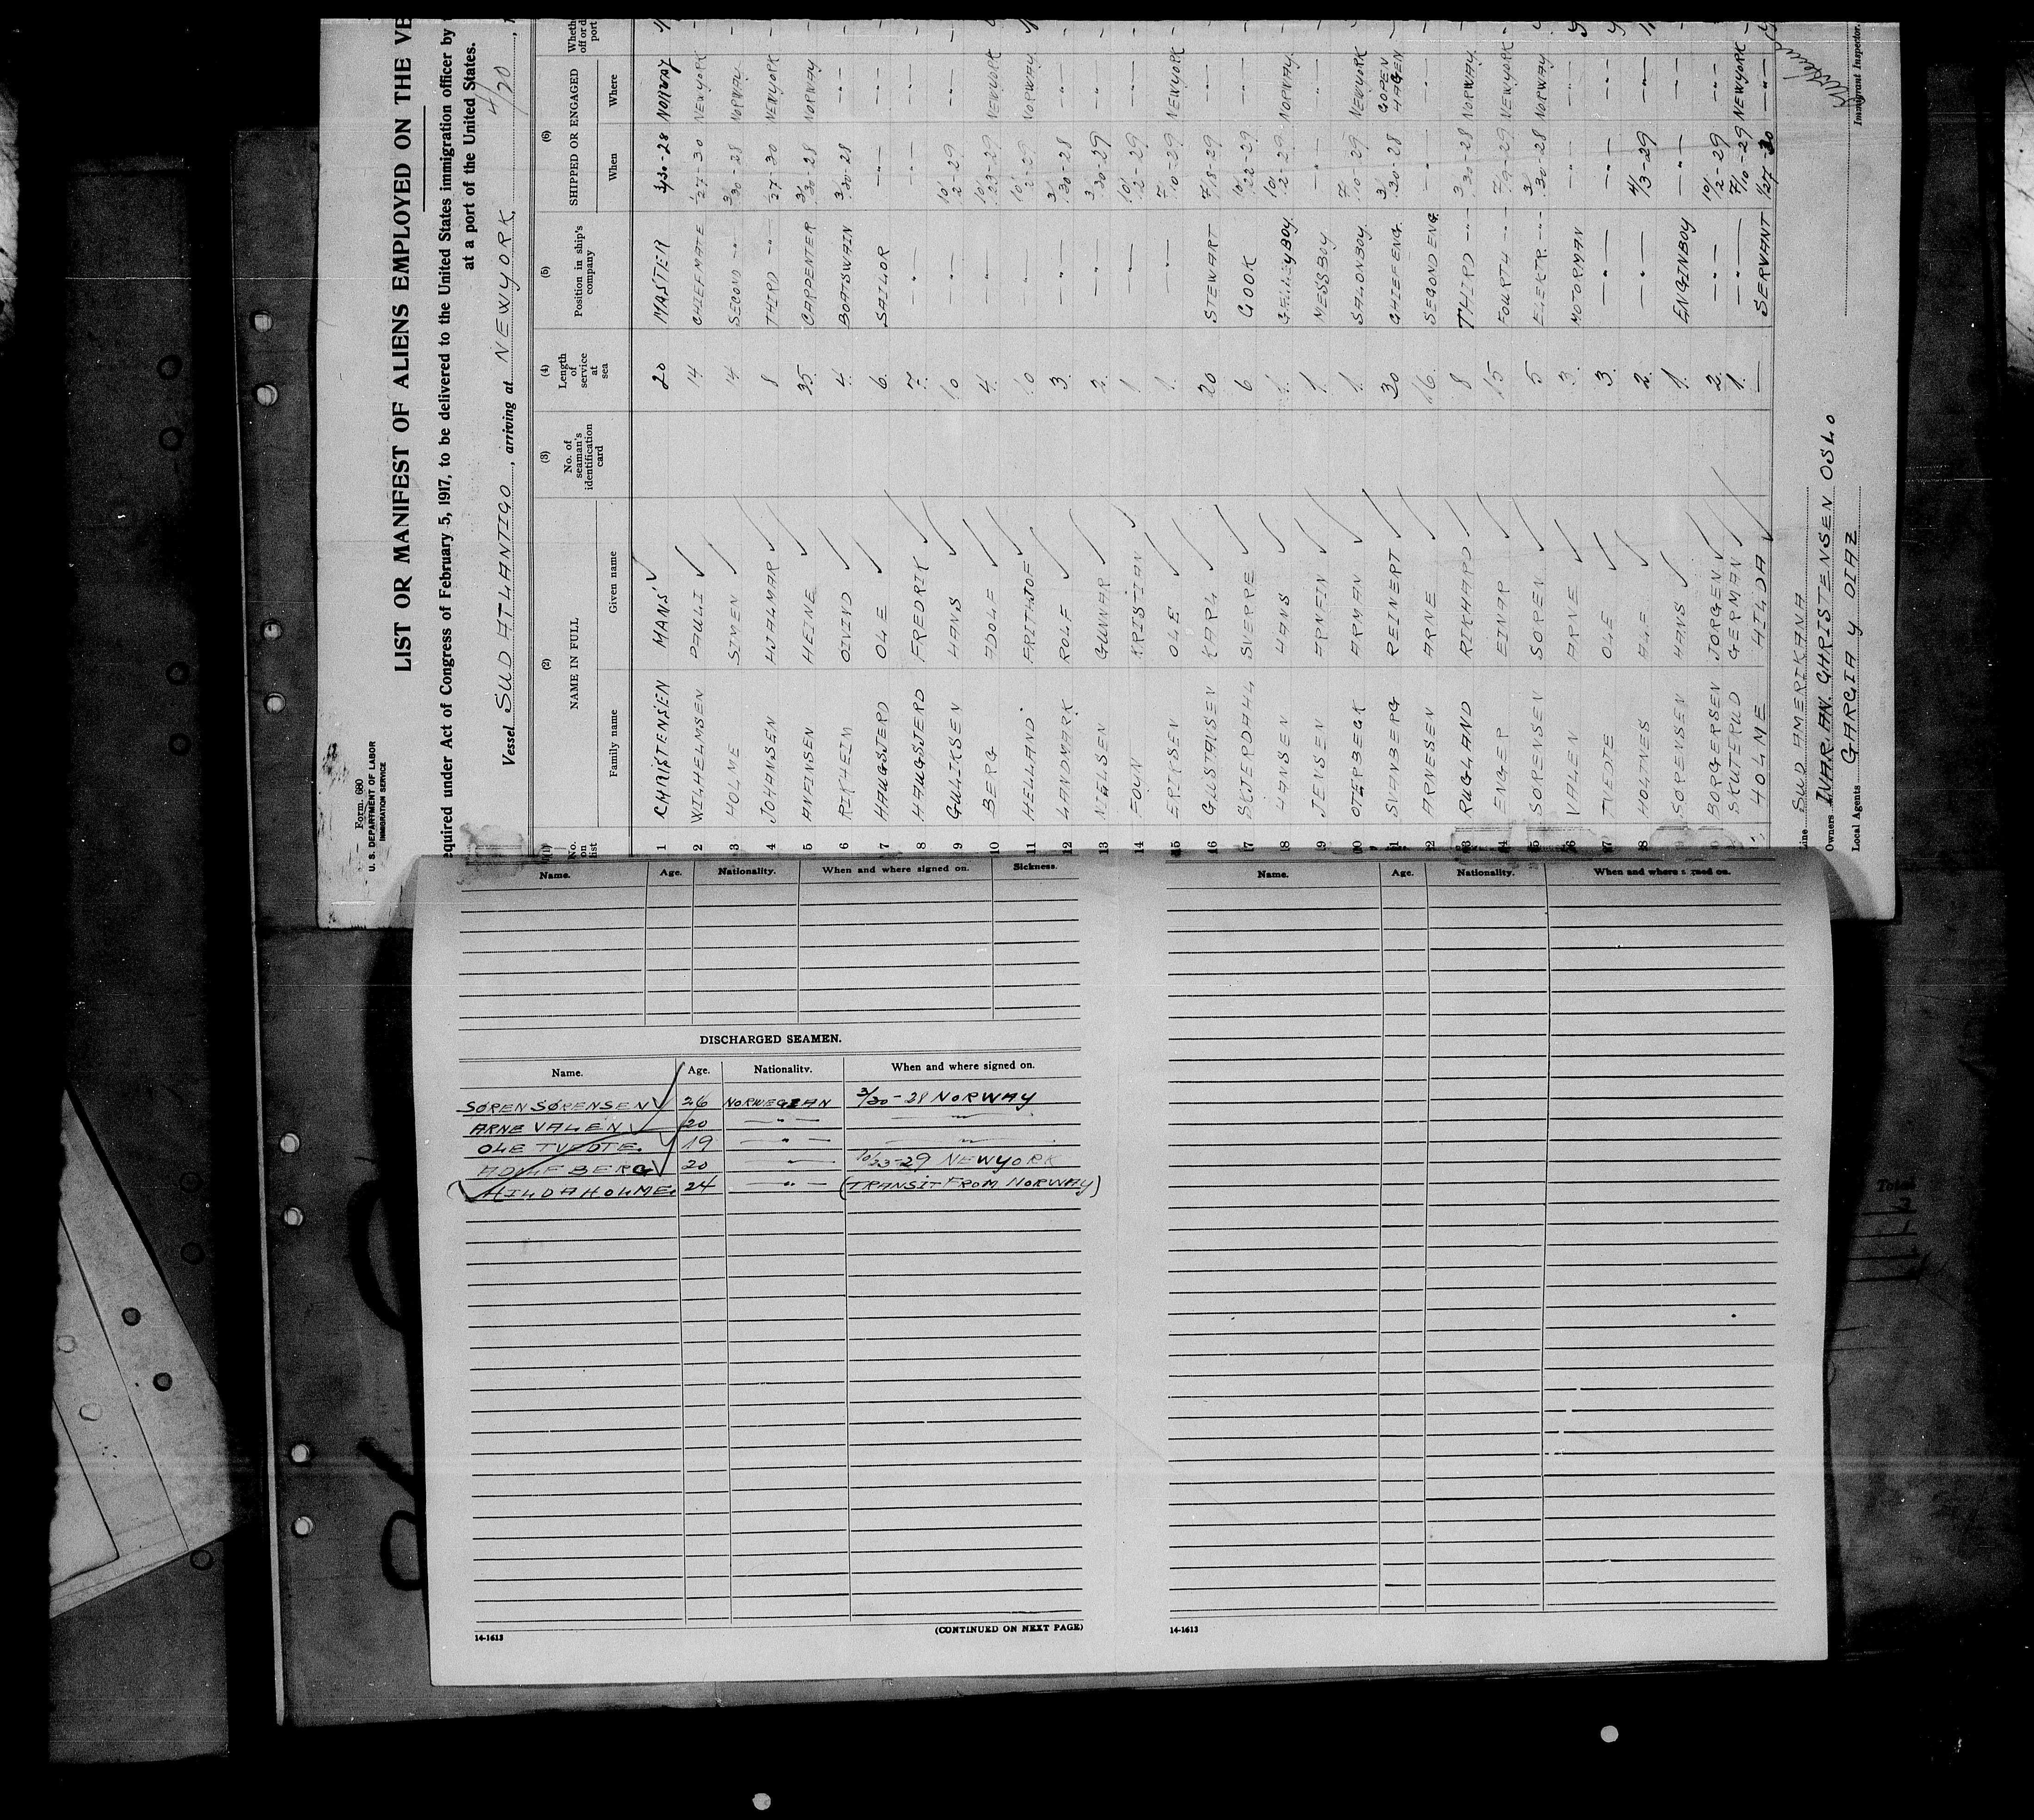 Form 680
U. S. DEPARTMENT OF LABOR
IMMIGRATION SERVICE
LIST OR MANIFEST OF ALIENS EMPLOYED ON THE
equired under Act of Congress of February 5, 1917, to be delivered to the United States immigration officer by
at a port of the United States.
Vessel SUD ATLANTICO, arriving at NEWYORK, 4/20
(1) (2) (3) (4) (5) (6)
No. on list NAME IN FULL No. of seaman's identification card Length of service at sea Position in ship's company SHIPPED OR ENGAGED
Family name Given name When Where
1 CHRISTENSEN MANS 20 MASTER 3/30-28 NORWAY
2 WILHELMSEN PAULI 14 CHIEFMATE 1/27-30 NEWYORK
3 HOLME SIMEN 14 SECOND -"- 3/30-28 NORWAY
4 JOHANSEN HJALMAR 8 THIRD -"- 1/27-30 NEWYORK
5 AVEINSEN HEINE 35 CARPENTER 3/30-28 NORWAY
6 RIKHEIM OIVIND 4 BOATSWAIN 3/30-28 -"-
7 HAUGSJERD OLE 6 SAILOR -"- -"-
8 HAUGSJERD FREDRIK 7 -"- -"- -"-
9 GULIKSEN HANS 10 -"- 10/2-29 -"-
10 BERG ADOLF 4 -"- 10/23-29 NEWYORK
11 HELLAND FRITHJOF 10 -"- 10/2-29 NORWAY
12 LANDMARK ROLF 3 -"- 3/30-28 -"-
13 NIELSEN GUNNAR 2 -"- 3/30-29 -"-
14 FOUN KRISTIAN 1 -"- 10/2-29 -"-
15 ERIKSEN OLE 1 -"- 7/10-29 NEWYORK
16 GUSTAVSEN KARL 20 STEWART 7/18-29 -"-
17 SKJERDAHL SVERRE 6 COOK 10/22-29 -"-
18 HANSEN HANS 1 GALLEYBOY 10/2-29 NORWAY
19 JENSEN ARNFIN 1 MESSBOY -"- -"-
20 OTERBECK ARMAN 1 SALONBOY 7/10-29 NEWYORK
21 SVENBERG REINERT 30 CHIEF ENG. 3/30-28 COPENHAGEN
22 ARNESEN ARNE 16 SECOND ENG. -"- -"-
23 RUGLAND RIKHARD 8 THIRD -"- 3/30-28 NORWAY
24 ENGER EINAR 15 FOURTH -"- 7/9-29 NEWYORK
25 SORENSEN SOREN 5 ELEKTR. -"- 3/30-28 NORWAY
26 VALEN ARNE 3 MOTORMAN -"- -"-
27 TVEDTE OLE 3 -"- -"- -"-
28 HOLNES ALE 2 -"- 4/13-29 -"-
SORENSEN HANS 1 ENGINBOY -"- -"-
BORGERSEN JORGEN 2 -"- 10/2-29 -"-
SKUTERUD GERMAN 1 -"- 7/10-29 NEWYORK
HOLME HILDA — SERVANT 1/27-30 -"-
Line SUD AMERIKANA
Owners IVAR AN CHRISTENSEN OSLO
Local Agents GARCIA y DIAZ
Immigrant Inspector.
Name. Age. Nationality. When and where signed on. Sickness.
DISCHARGED SEAMEN.
Name. Age. Nationality. When and where signed on.
SØREN SØRENSEN 26 NORWEGEAN 3/30-28 NORWAY
ARNE VALEN 20 -"- -"-
OLE TVEDTE. 19 -"- -"-
ADOLF BERG 20 -"- 10/23-29 NEWYORK
HILDA HOLME. 24 -"- (TRANSIT FROM NORWAY)
14-1613 (CONTINUED ON NEXT PAGE)
Name. Age. Nationality. When and where signed on.
14-1613
Total